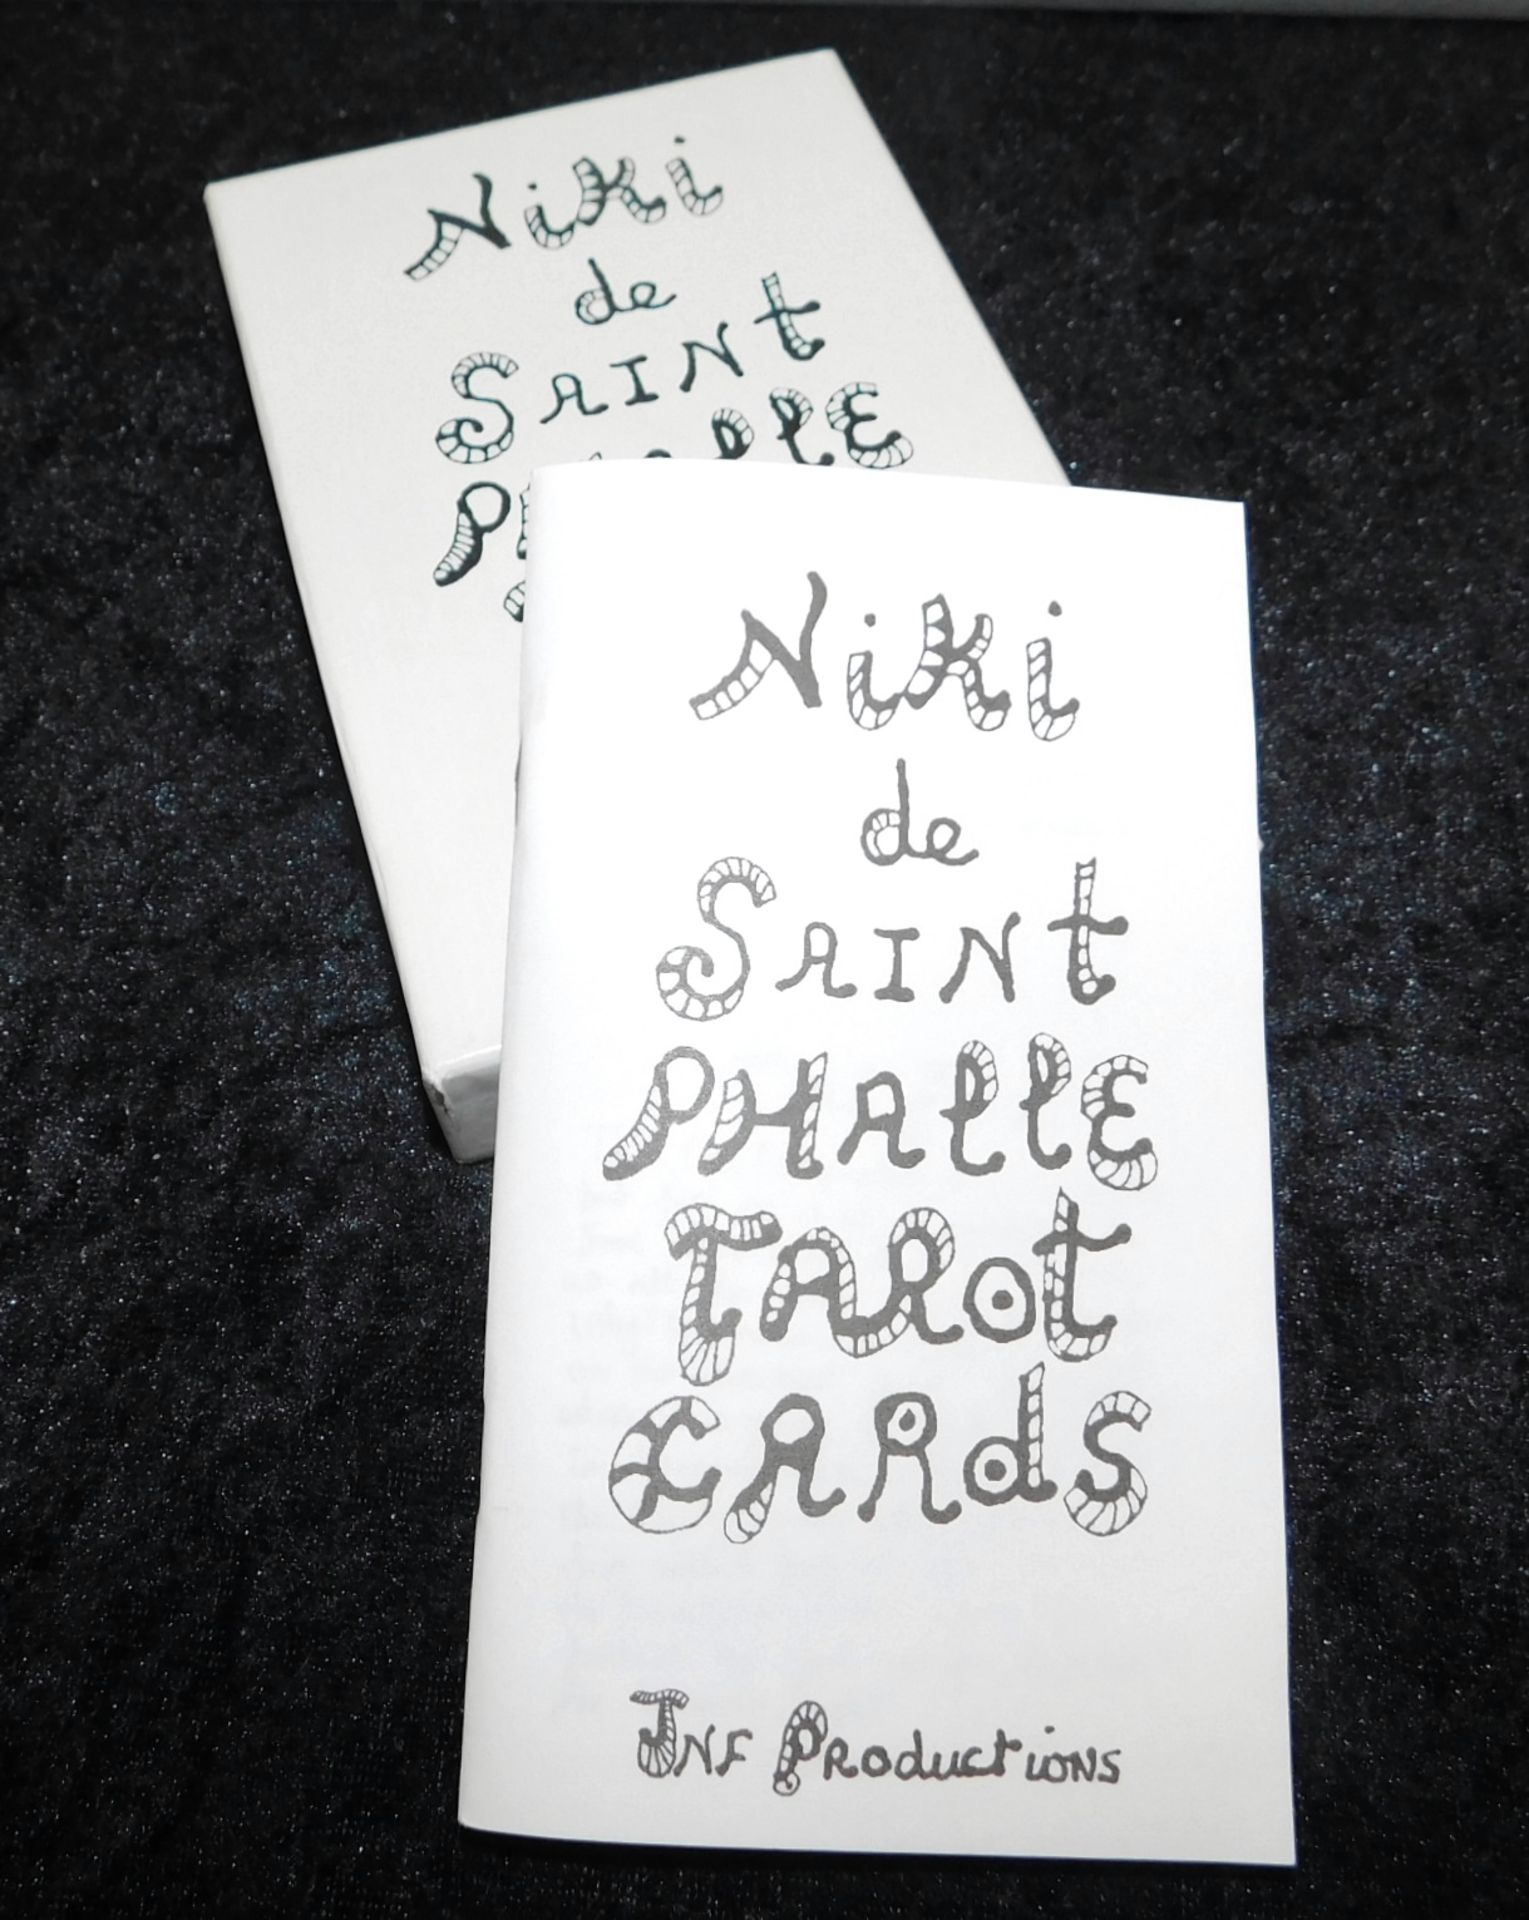 Niki
de
SAINt
PHAllE
Niki
de
SAINt
PHAllE
TARot
CARdS
JNF PRoductioNS